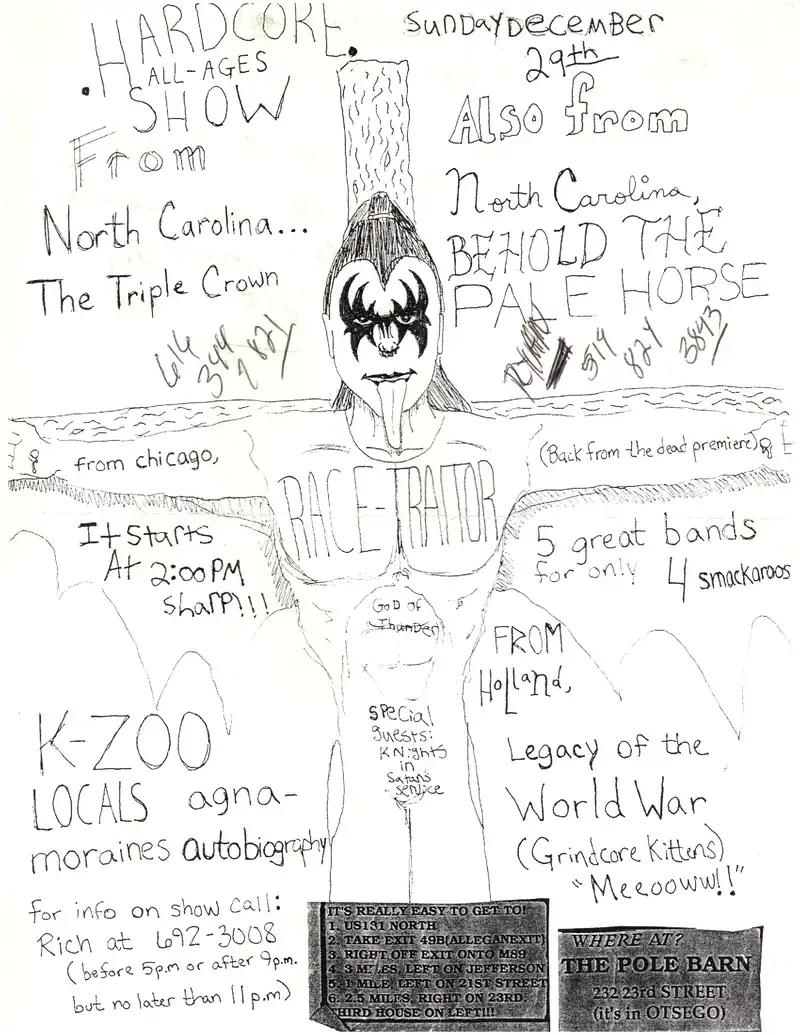 .HARDCORE.
ALL-AGES
SHOW
From
North Carolina...
The Triple Crown
SUNDAY DECEMBER
29th
Also from
North Carolina,
BEHOLD THE
PALE HORSE
616
344
821
519
824
3843
from chicago,
RACE-TRAITOR
(Back from the dead premiere)
It starts
At 2:00 PM
sharp!!!
5 great bands
for only 4 smackaroos
GOD OF
Thunder
special
guests:
KNights
in
Satan's
service
FROM
Holland,
Legacy of the
World War
(Grindcore Kittens)
"Meeooww!!"
K-ZOO
LOCALS agna-
moraines autobiography
for info on show call:
Rich at 692-3008
(before 5p.m or after 9p.m.
but no later than 11p.m)
IT'S REALLY EASY TO GET TO!
1. US131 NORTH
2. TAKE EXIT 49B(ALLEGANEXIT)
3. RIGHT OFF EXIT ONTO M89
4. 3 MILES, LEFT ON JEFFERSON
5. 1 MILE, LEFT ON 21ST STREET
6. 2.5 MILES, RIGHT ON 23RD.
THIRD HOUSE ON LEFT!!!
WHERE AT?
THE POLE BARN
232 23rd STREET
(it's in OTSEGO)